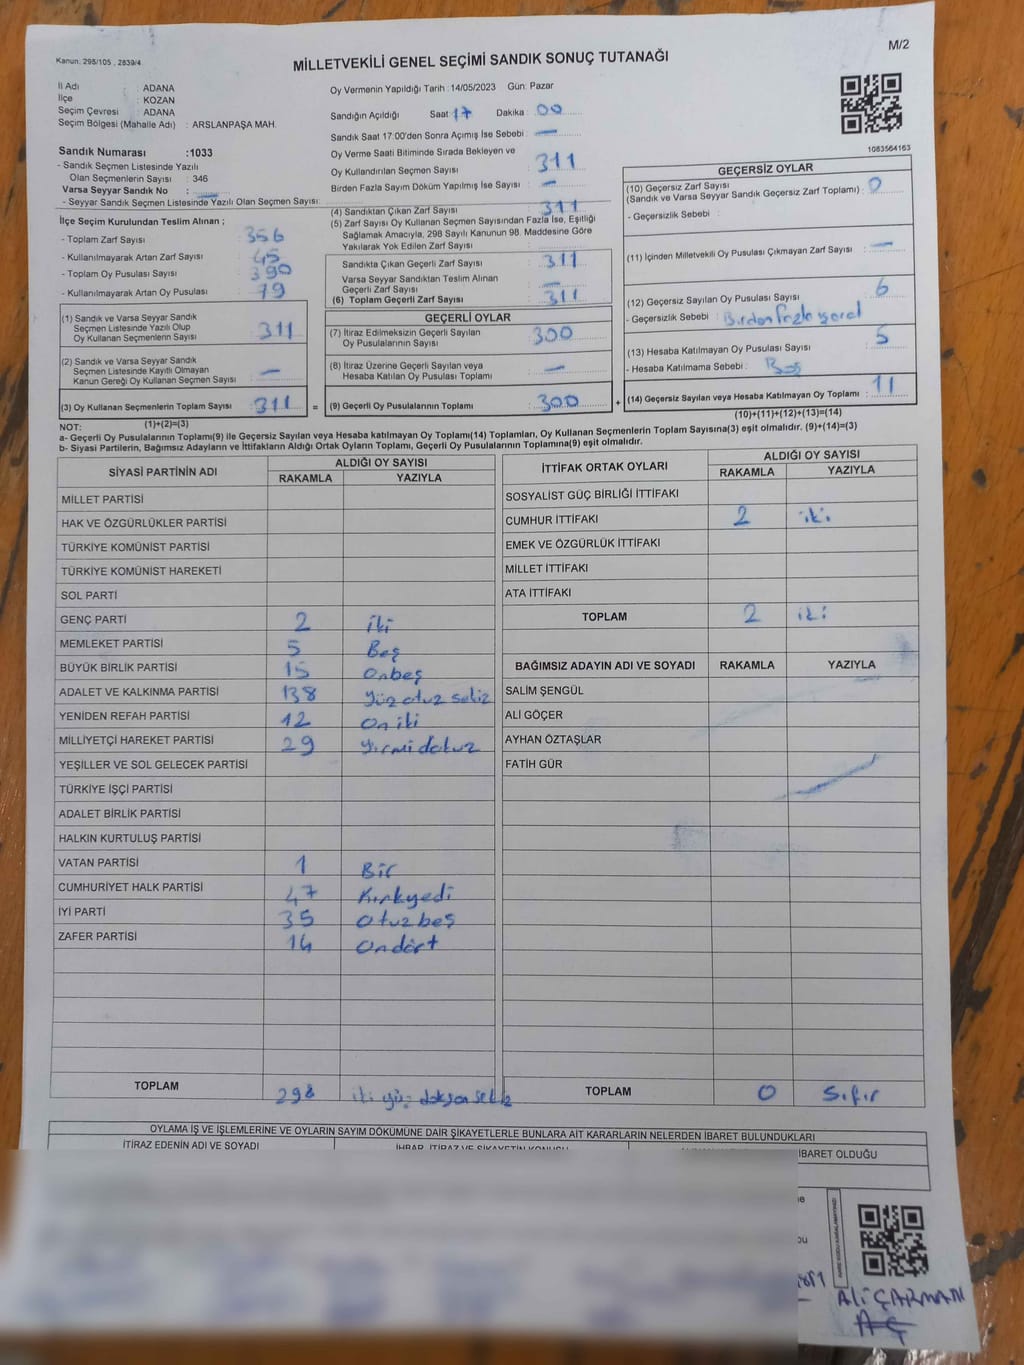 Kanun: 298/105 , 2839/4
MİLLETVEKİLİ GENEL SEÇİMİ SANDIK SONUÇ TUTANAĞI
M/2
İl Adı : ADANA
İlçe : KOZAN
Seçim Çevresi : ADANA
Seçim Bölgesi (Mahalle Adı) : ARSLANPAŞA MAH.
Sandık Numarası :1033
- Sandık Seçmen Listesinde Yazılı
Olan Seçmenlerin Sayısı : 346
Varsa Seyyar Sandık No : —
- Seyyar Sandık Seçmen Listesinde Yazılı Olan Seçmen Sayısı:
Oy Vermenin Yapıldığı Tarih :14/05/2023 Gün: Pazar
Sandığın Açıldığı Saat : 17 Dakika : 00
Sandık Saat 17:00'den Sonra Açımış İse Sebebi : —
Oy Verme Saati Bitiminde Sırada Bekleyen ve
Oy Kullandırılan Seçmen Sayısı : 311
Birden Fazla Sayım Döküm Yapılmış İse Sayısı : —
1083564163
İlçe Seçim Kurulundan Teslim Alınan ;
- Toplam Zarf Sayısı : 356
- Kullanılmayarak Artan Zarf Sayısı : 45
- Toplam Oy Pusulası Sayısı : 390
- Kullanılmayarak Artan Oy Pusulası : 79
(1) Sandık ve Varsa Seyyar Sandık
Seçmen Listesinde Yazılı Olup
Oy Kullanan Seçmenlerin Sayısı : 311
(2) Sandık ve Varsa Seyyar Sandık
Seçmen Listesinde Kayıtlı Olmayan
Kanun Gereği Oy Kullanan Seçmen Sayısı : —
(3) Oy Kullanan Seçmenlerin Toplam Sayısı : 311
(1)+(2)=(3)
(4) Sandıktan Çıkan Zarf Sayısı : 311
(5) Zarf Sayısı Oy Kullanan Seçmen Sayısından Fazla İse, Eşitliği
Sağlamak Amacıyla, 298 Sayılı Kanunun 98. Maddesine Göre
Yakılarak Yok Edilen Zarf Sayısı :
Sandıkta Çıkan Geçerli Zarf Sayısı : 311
Varsa Seyyar Sandıktan Teslim Alınan
Geçerli Zarf Sayısı : —
(6) Toplam Geçerli Zarf Sayısı : 311
GEÇERLİ OYLAR
(7) İtiraz Edilmeksizin Geçerli Sayılan
Oy Pusulalarının Sayısı : 300
(8) İtiraz Üzerine Geçerli Sayılan veya
Hesaba Katılan Oy Pusulası Toplamı : —
= (9) Geçerli Oy Pusulalarının Toplamı : 300
GEÇERSİZ OYLAR
(10) Geçersiz Zarf Sayısı
(Sandık ve Varsa Seyyar Sandık Geçersiz Zarf Toplamı) : 0
- Geçersizlik Sebebi :
(11) İçinden Milletvekili Oy Pusulası Çıkmayan Zarf Sayısı : —
(12) Geçersiz Sayılan Oy Pusulası Sayısı : 6
- Geçersizlik Sebebi : Birden Fazla
(13) Hesaba Katılmayan Oy Pusulası Sayısı : 5
- Hesaba Katılmama Sebebi : Boş
+ (14) Geçersiz Sayılan veya Hesaba Katılmayan Oy Toplamı : 11
(10)+(11)+(12)+(13)=(14)
NOT:
a- Geçerli Oy Pusulalarının Toplamı(9) ile Geçersiz Sayılan veya Hesaba katılmayan Oy Toplamı(14) Toplamları, Oy Kullanan Seçmenlerin Toplam Sayısına(3) eşit olmalıdır. (9)+(14)=(3)
b- Siyasi Partilerin, Bağımsız Adayların ve İttifakların Aldığı Ortak Oyların Toplamı, Geçerli Oy Pusulalarının Toplamına(9) eşit olmalıdır.
SİYASİ PARTİNİN ADI ALDIĞI OY SAYISI
RAKAMLA YAZIYLA
MİLLET PARTİSİ
HAK VE ÖZGÜRLÜKLER PARTİSİ
TÜRKİYE KOMÜNİST PARTİSİ
TÜRKİYE KOMÜNİST HAREKETİ
SOL PARTİ
GENÇ PARTİ 2 iki
MEMLEKET PARTİSİ 5 Beş
BÜYÜK BİRLİK PARTİSİ 15 Onbeş
ADALET VE KALKINMA PARTİSİ 138 Yüz otuz sekiz
YENİDEN REFAH PARTİSİ 12 On iki
MİLLİYETÇİ HAREKET PARTİSİ 29 Yirmi dokuz
YEŞİLLER VE SOL GELECEK PARTİSİ
TÜRKİYE İŞÇİ PARTİSİ
ADALET BİRLİK PARTİSİ
HALKIN KURTULUŞ PARTİSİ
VATAN PARTİSİ 1 Bir
CUMHURİYET HALK PARTİSİ 47 Kırkyedi
İYİ PARTİ 35 Otuzbeş
ZAFER PARTİSİ 14 Ondört
TOPLAM 298 iki yüz doksan sekiz
İTTİFAK ORTAK OYLARI ALDIĞI OY SAYISI
RAKAMLA YAZIYLA
SOSYALİST GÜÇ BİRLİĞİ İTTİFAKI
CUMHUR İTTİFAKI 2 iki
EMEK VE ÖZGÜRLÜK İTTİFAKI
MİLLET İTTİFAKI
ATA İTTİFAKI
TOPLAM 2 iki
BAĞIMSIZ ADAYIN ADI VE SOYADI RAKAMLA YAZIYLA
SALİM ŞENGÜL
ALİ GÖÇER
AYHAN ÖZTAŞLAR
FATİH GÜR
TOPLAM 0 Sıfır
OYLAMA İŞ VE İŞLEMLERİNE VE OYLARIN SAYIM DÖKÜMÜNE DAİR ŞİKAYETLERLE BUNLARA AİT KARARLARIN NELERDEN İBARET BULUNDUKLARI
İTİRAZ EDENİN ADI VE SOYADI İHBAR, İTİRAZ VE ŞİKAYETİN KONUSU İBARET OLDUĞU
Ali ÇARMAN
AÇ